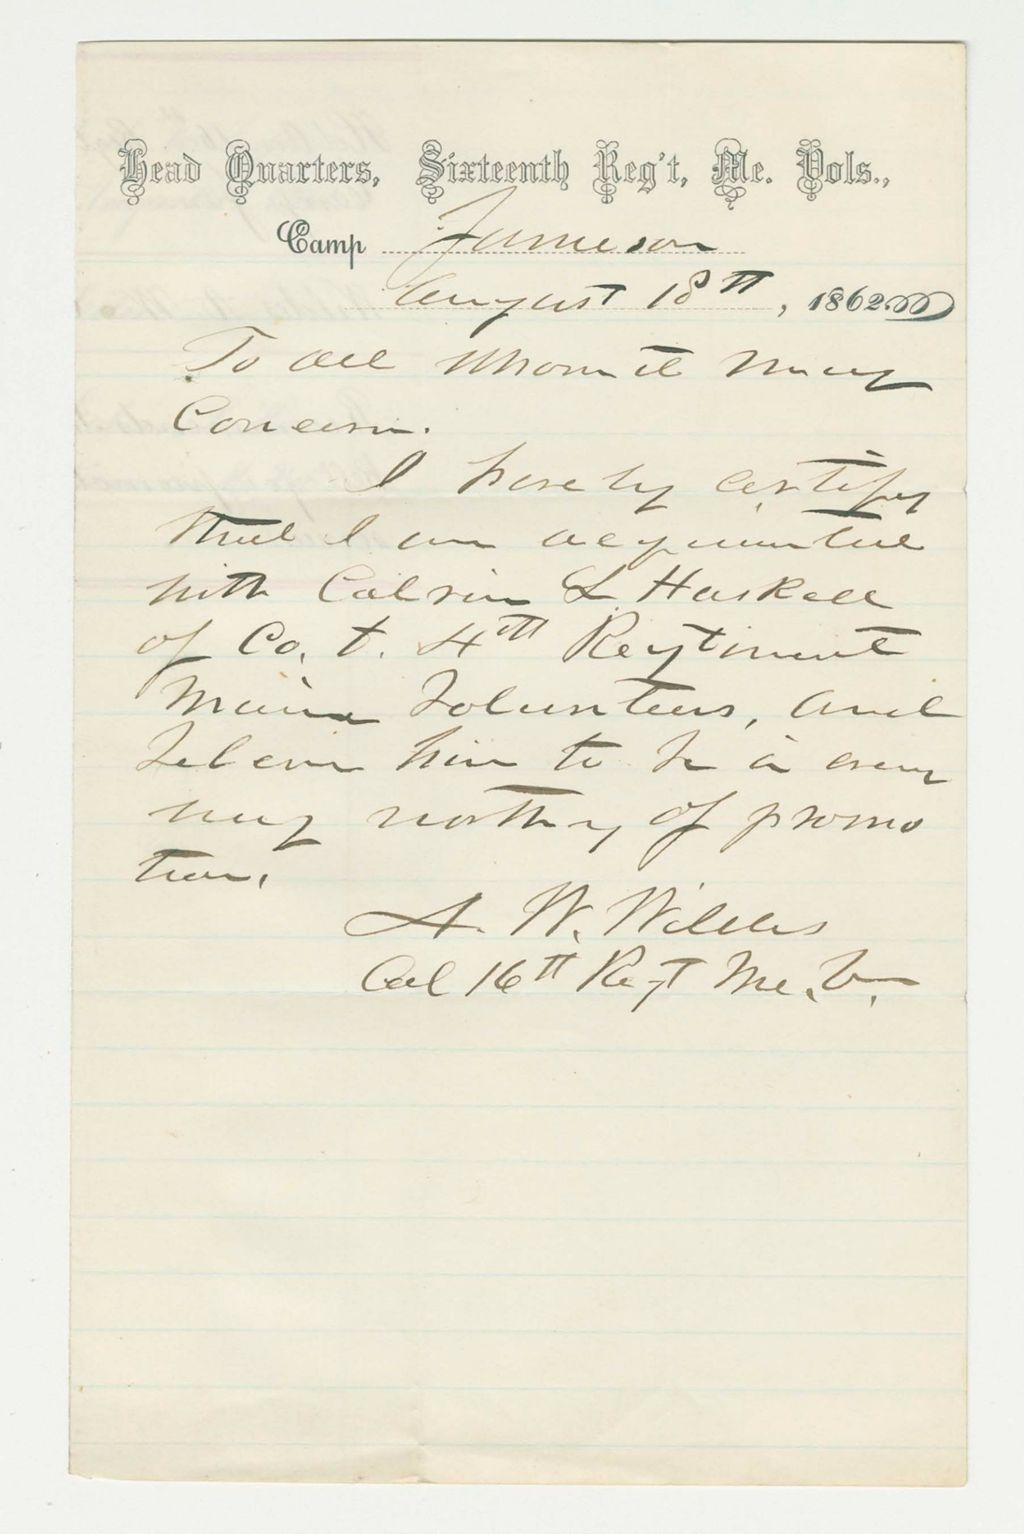 Head Quarters, Sixteenth Reg't, Me. Vols.,
Camp Jameson
August 18th, 1862
To all whom it may
Concern.
I hereby certify
that I am acquainted
with Calvin L Haskell
of Co. 4th Regtiment
Maine Volunteers, and
believe him to be in every
way worthy of promo
tion.
A. W. Wildes
Col 16th Regt Me. V.